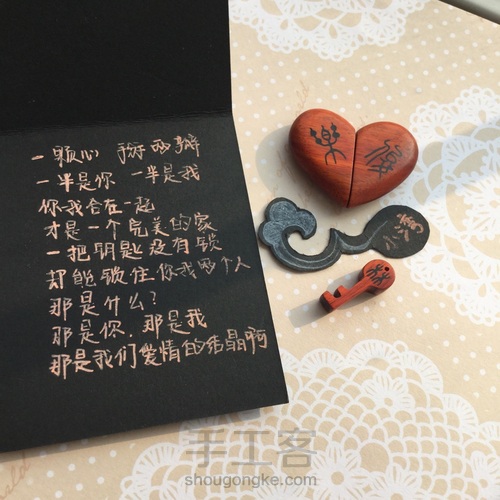 一颗心 掰两瓣
一半是你 一半是我
你我合在一起
才是一个完美的家
一把钥匙没有锁
却能锁住你我两个人
那是什么?
那是你.那是我
那是我们爱情的结晶啊
手工客
shougongke.com